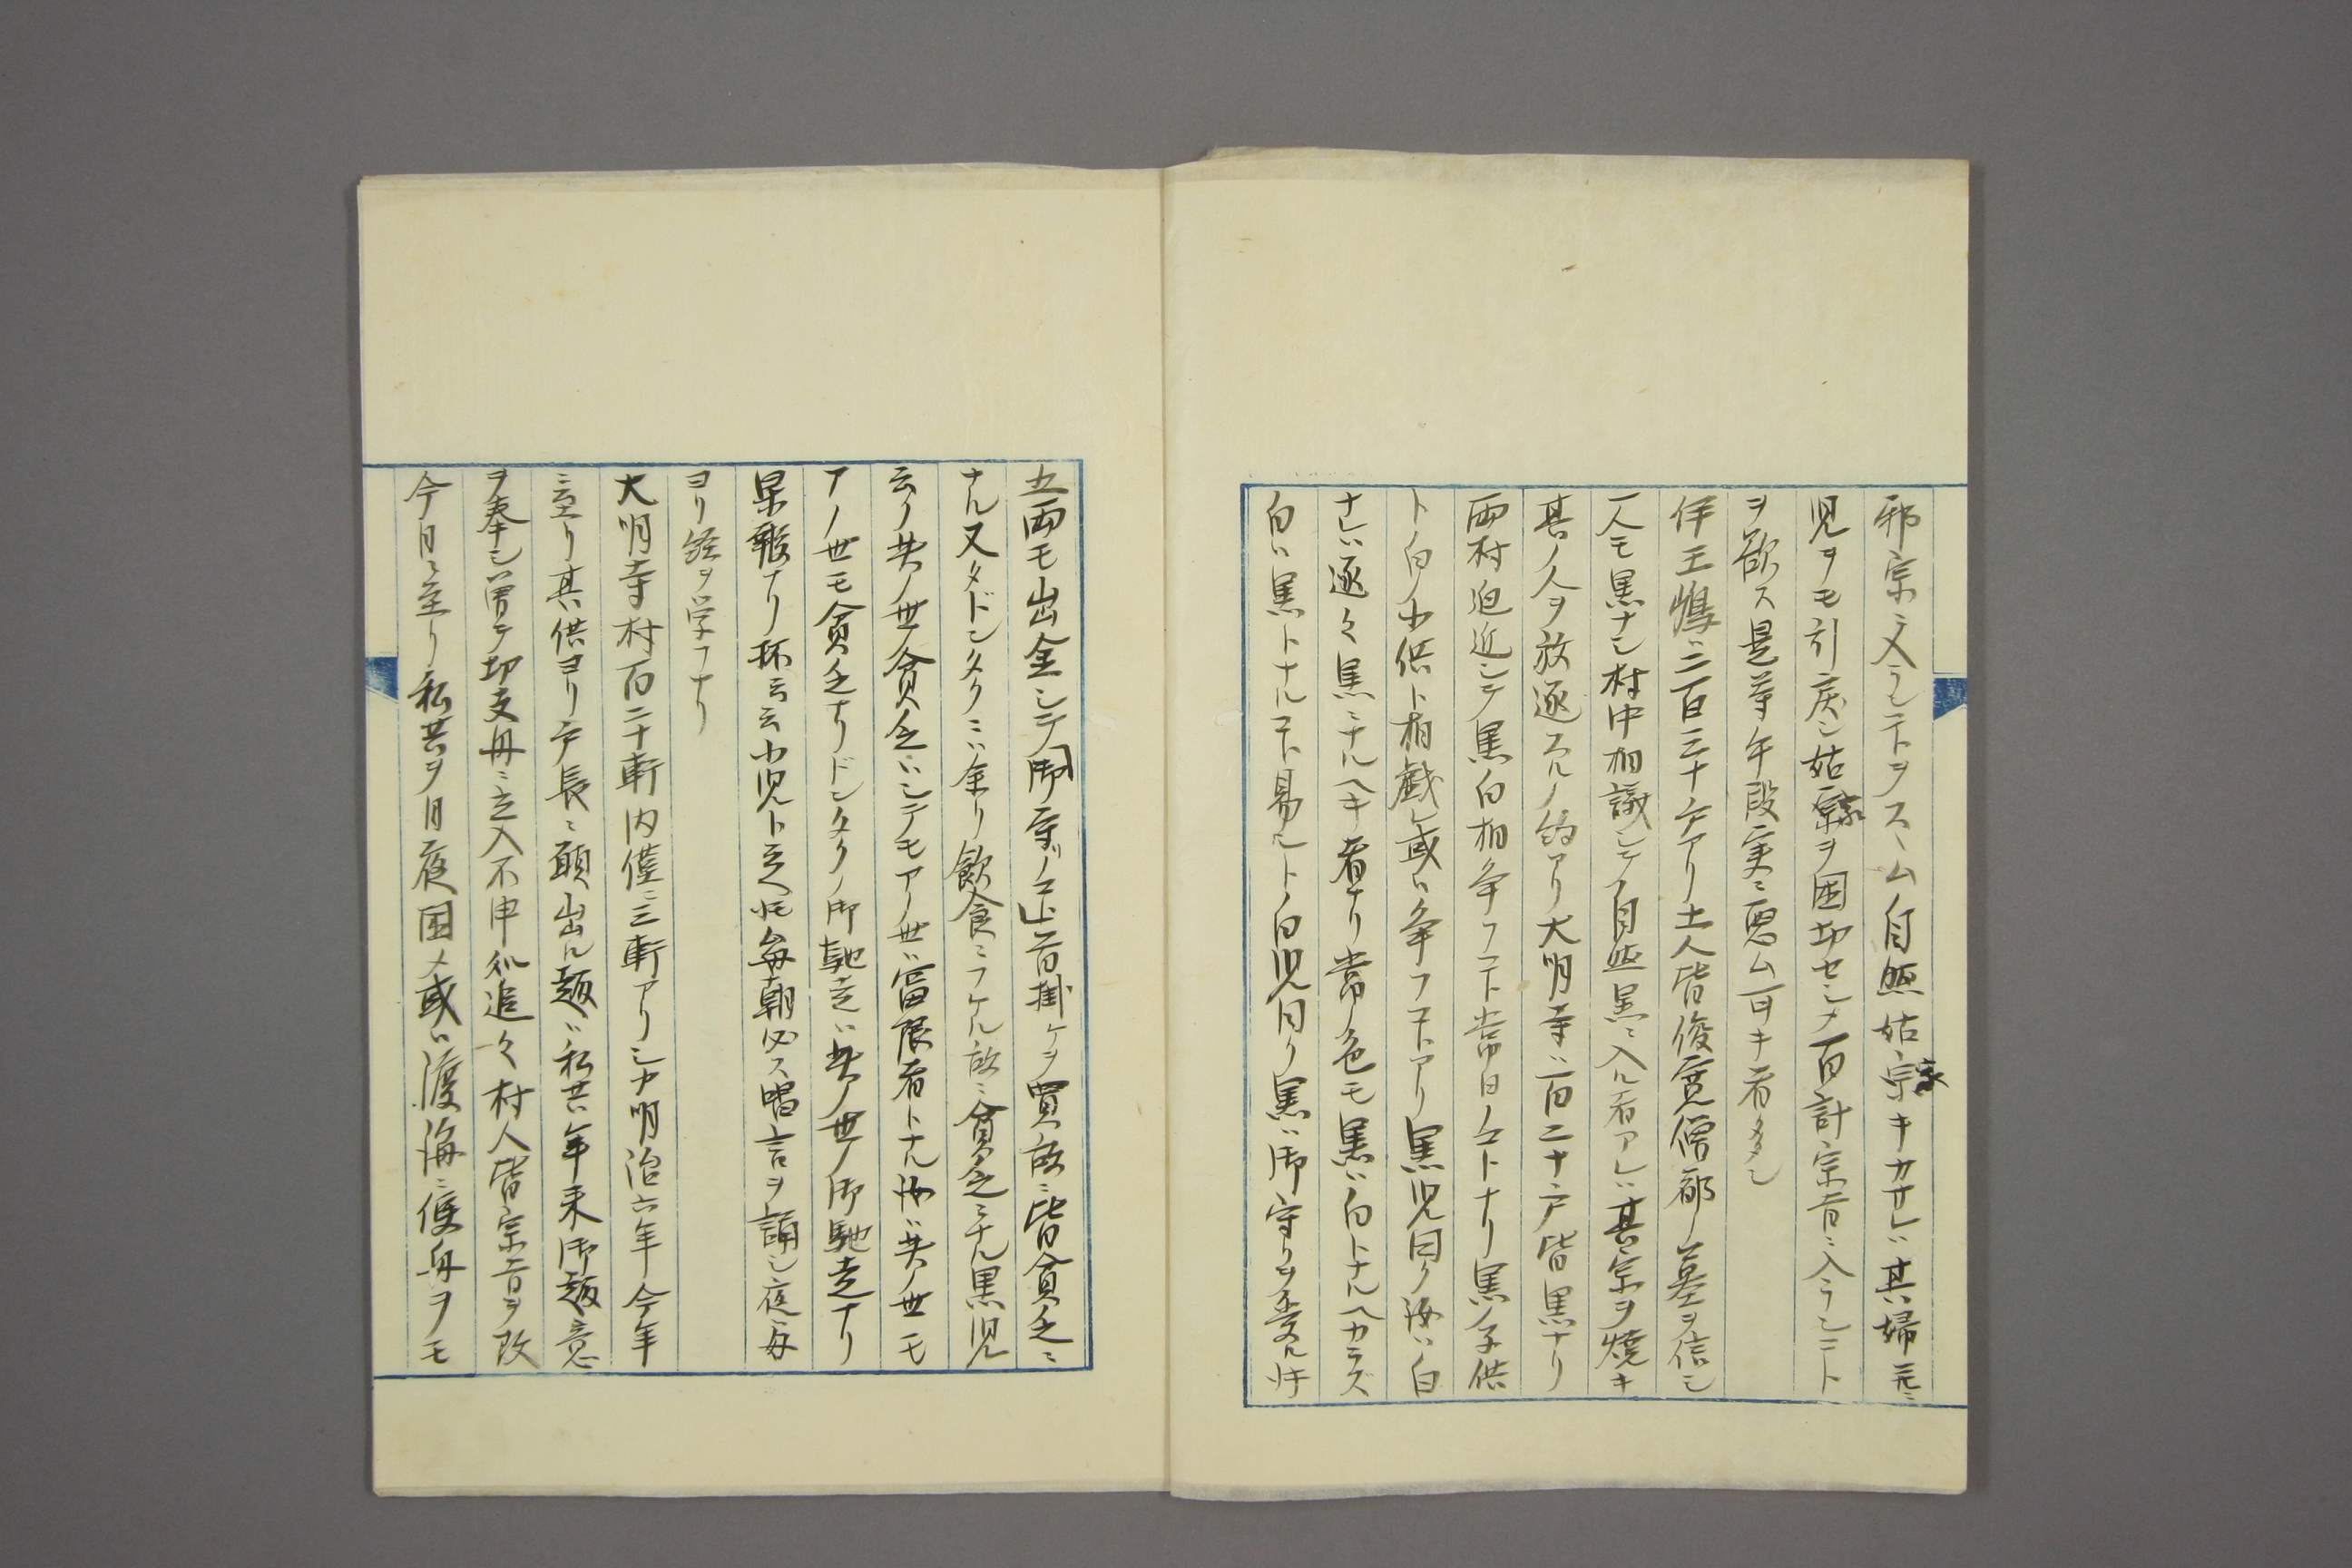 邪宗ニ入ランヿヲスヽム自然姑宗家キカサレハ其婦元ニ
児ヲモ引戻シ姑家ヲ困却セシメ百計宗旨ニ入ランヿ
ヲ欲ス是等ノ手段実ニ悪ム可キ者多シ
伊王嶋ニ二百三十戸アリ土人皆俊寛僧都ノ墓ヲ信シ
一人モ黒ナシ村中相議シテ自然黒ニ入ル者アレハ其家ヲ焼キ
其ノ人ヲ放逐スルノ約アリ大明寺ハ百二十戸皆黒ナリ
両村迫近シテ黒白相争フコト常日ノコトナリ黒ノ子供
ト白ノ小供ト相戯レ或ハ争フコトアリ黒児曰ク汝ハ白
ナレハ逐々黒ニナルヘキ者ナリ常ノ色モ黒ハ白トナルヘカラズ
白ハ黒トナルコト易シト白児曰ク黒ハ御守リヲ受ル時
五両モ出金シテ御守ノ上首掛ケヲ買故ニ皆貧乏ニ
ナル又タドンタクニハ余リ飲食ニフケル故ニ貧乏ニナル黒児
云ク此ノ世ハ貧乏ニシテモアノ世ハ富限者トナル汝ハ此ノ世モ
アノ世モ貧乏ナリドンタクノ御馳走ハ此ノ世ノ御馳走ナリ
早報ナリ抔云云小児ト之レ𪜈毎朝必ス唱言ヲ誦シ夜毎
ヨリ経ヲ学フナリ
大明寺村百二十軒内僅ニ三軒アリシカ明治六年今年
ニ至リ其供ヨリ戸長ニ願出ル趣ハ私共年来御趣意
ヲ奉シ曽テ切支丹ニ立入不申処追々村人皆宗旨ヲ改
今日ニ至リ私共ヲ日夜困メ或ハ渡海ニ便舟ヲモ